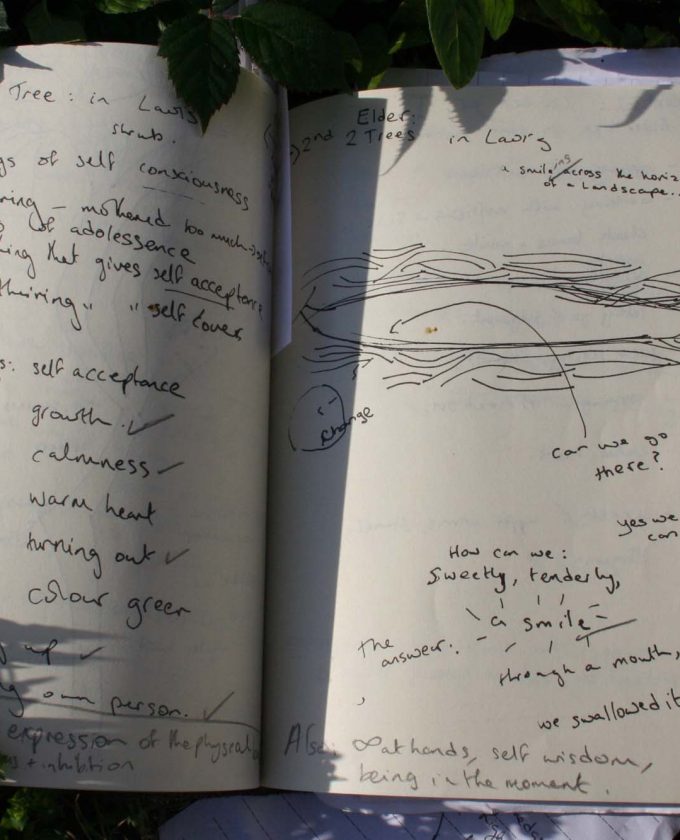 Tree: in Lawrs
shrub.
gs of self consciousness
ring - mothered too much
of adolessence
ing that gives self acceptance
thiring " " self lover
s: self acceptance
growth. ✓
calmness ✓
warm heart
turning out ✓
colour green
g up ✓
ng own person. ✓
expression of the physcal
+ inhibition
Elder:
2nd 2 Trees in Lawrg
a smile ins across the horiz
of a Landscape..
change
can we go
there?
yes we
can
How can we:
Sweetly, tenderly,
a smile
the
answer:
through a mouth,
we swallowed it
Also: ∞ at hands, self wisdom,
being in the moment.